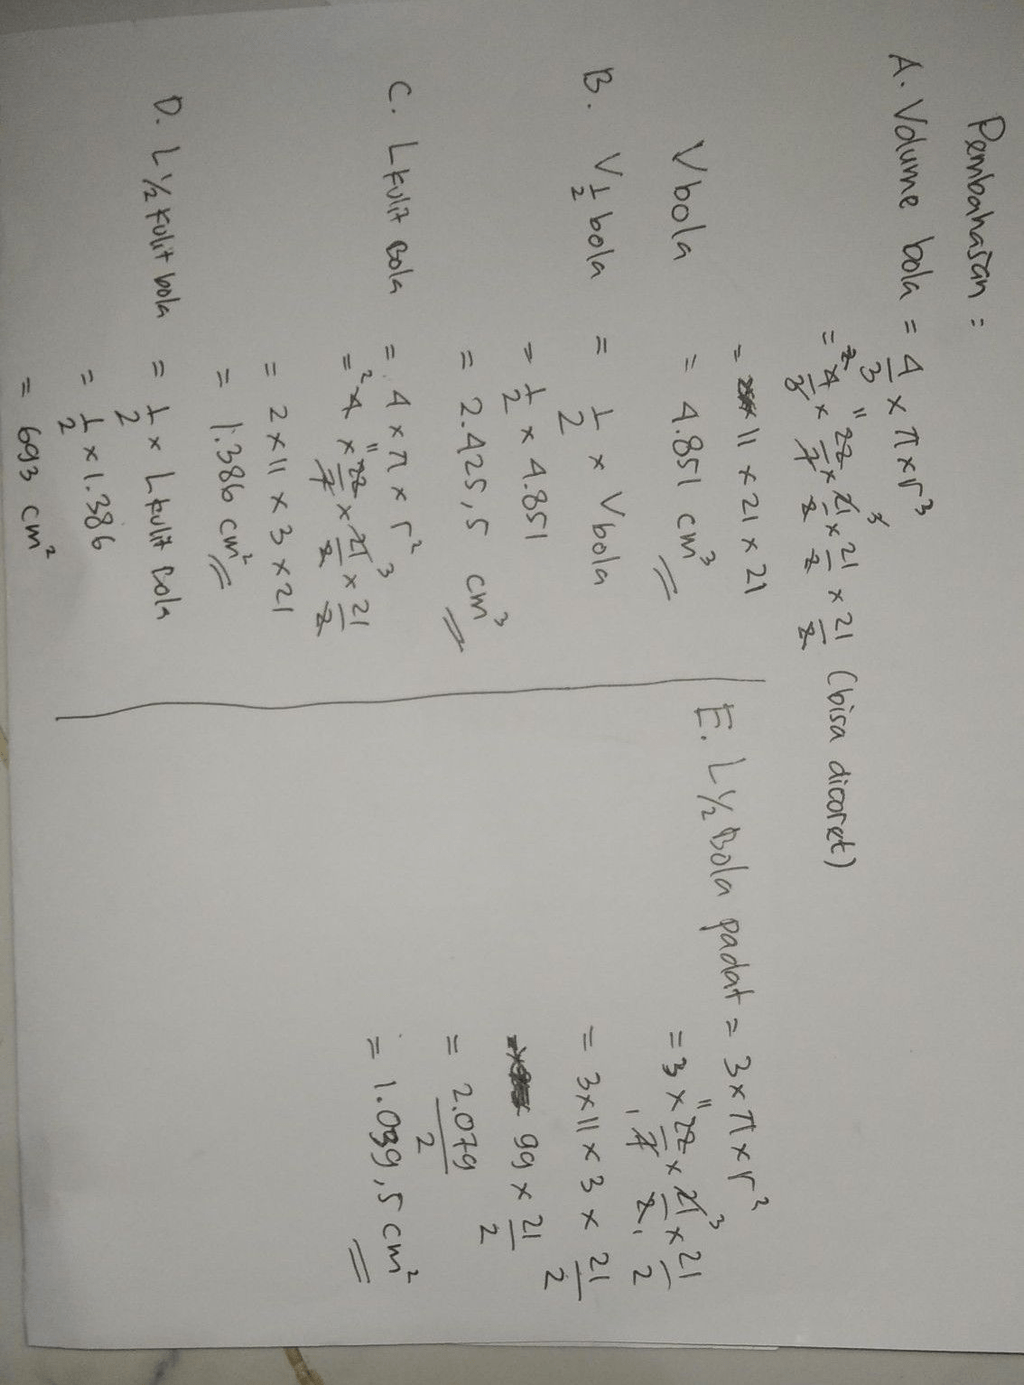 Pembahasan :
A. Volume bola = 4/3 × π × r³
= ²4/3 × ¹¹22/7 × 21³/2 × 21/2 × 21/2 (bisa dicoret)
= 11 × 21 × 21
V bola = 4.851 cm³
B. V ½ bola = ½ × V bola
= ½ × 4.851
= 2.425,5 cm³
C. L kulit Bola = 4 × π × r²
= ²4 × ¹¹22/7 × 21³/2 × 21/2
= 2 × 11 × 3 × 21
= 1.386 cm²
D. L ½ kulit bola = ½ × L kulit Bola
= ½ × 1.386
= 693 cm²
E. L ½ Bola padat = 3 × π × r²
= 3 × ¹¹22/7 × 21³/2 × 21/2
= 3 × 11 × 3 × 21/2
99 × 21/2
= 2.079/2
= 1.039,5 cm²